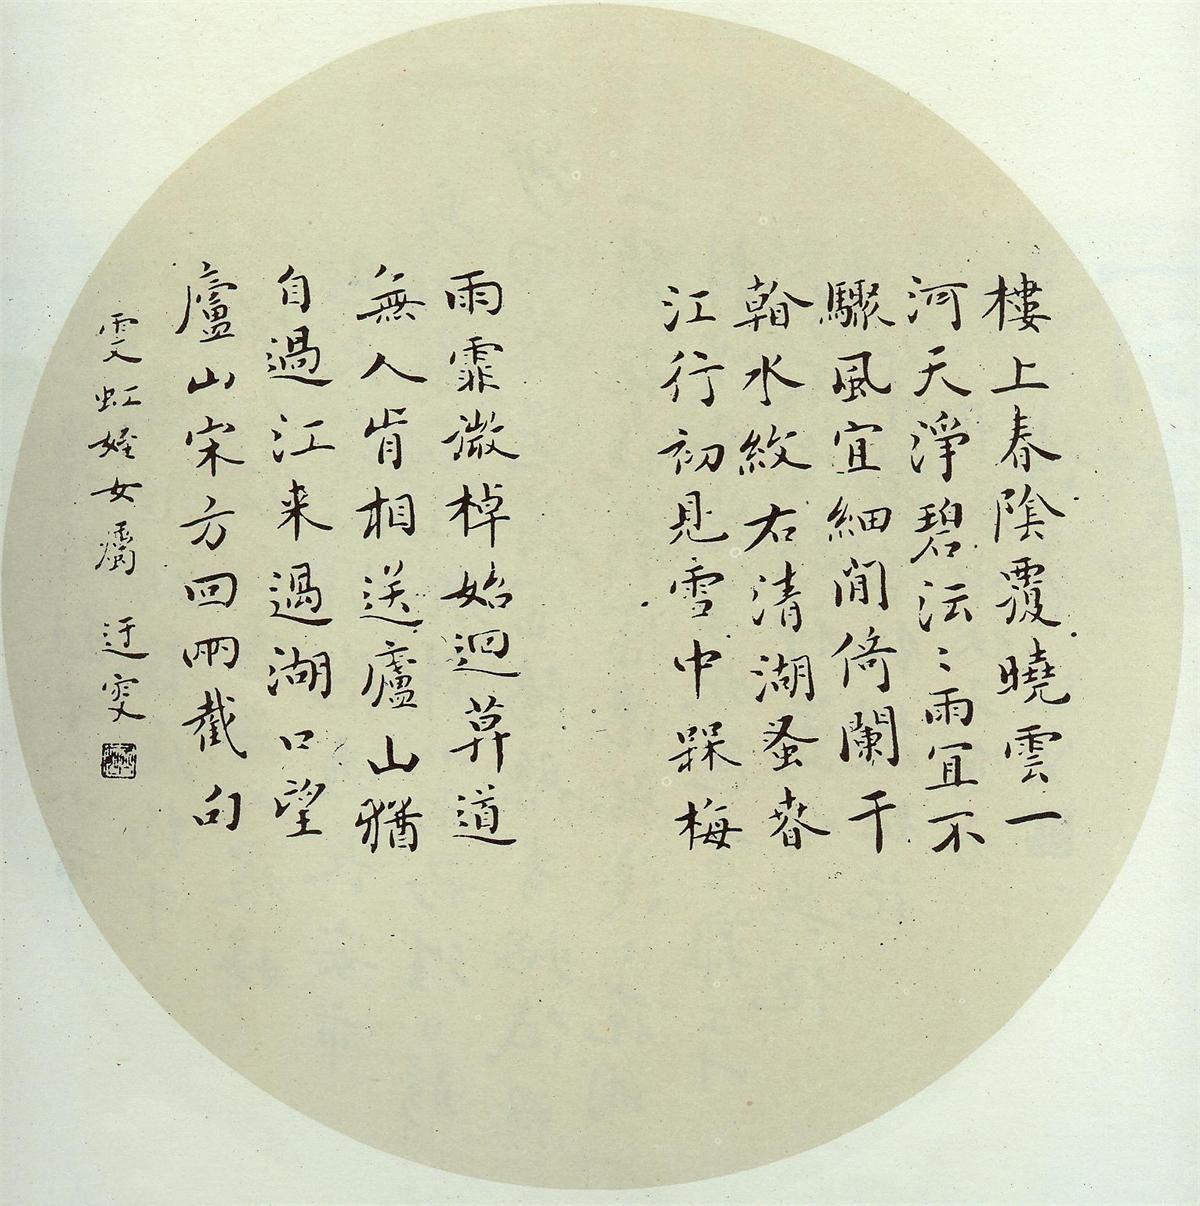 樓上春陰覆曉雲一
河天淨碧沄〻雨宜不
驟風宜細閒倚闌干
看水紋右清湖蚤春
江行初見雪中槑梅
雨霏微棹始迴莫道
無人肯相送廬山猶
自過江来過湖口望
廬山宋方回兩截句
雯虹姪女屬 迂叟